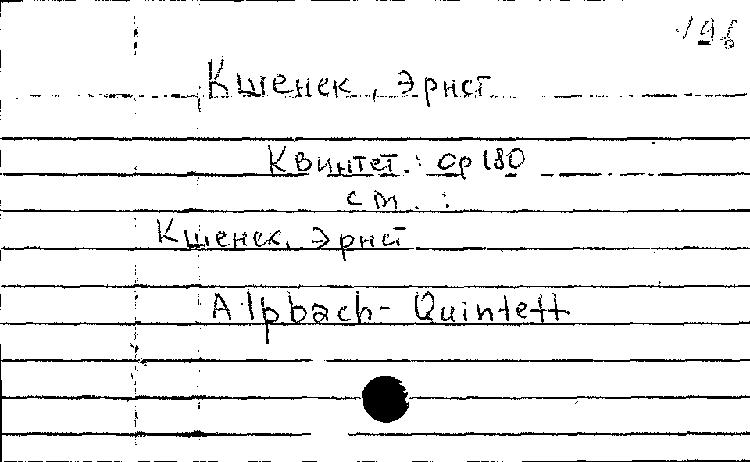 196
Кшенек, Эрнст
Квинтет.: op 180
см.:
Кшенек, Эрнст
Alpbach-Quintett